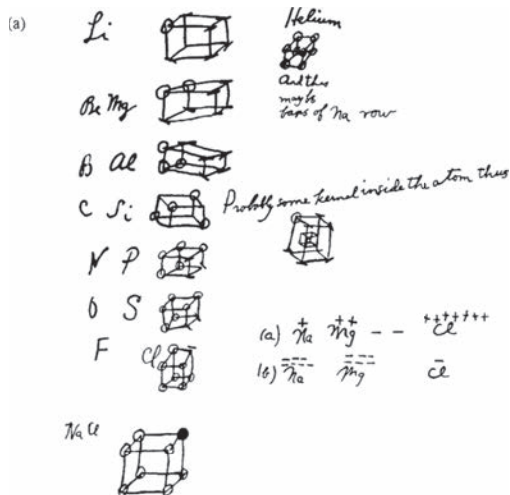 (a)
Li
Helium
And this
maybe
basis of Na row
Be Mg
B Al
C Si
Probably some kernel inside the atom thus
N P
O S
F Cl
(a) + Na ++ Mg - - +++++++ Cl
(b) Na Mg - Cl
Na Cl